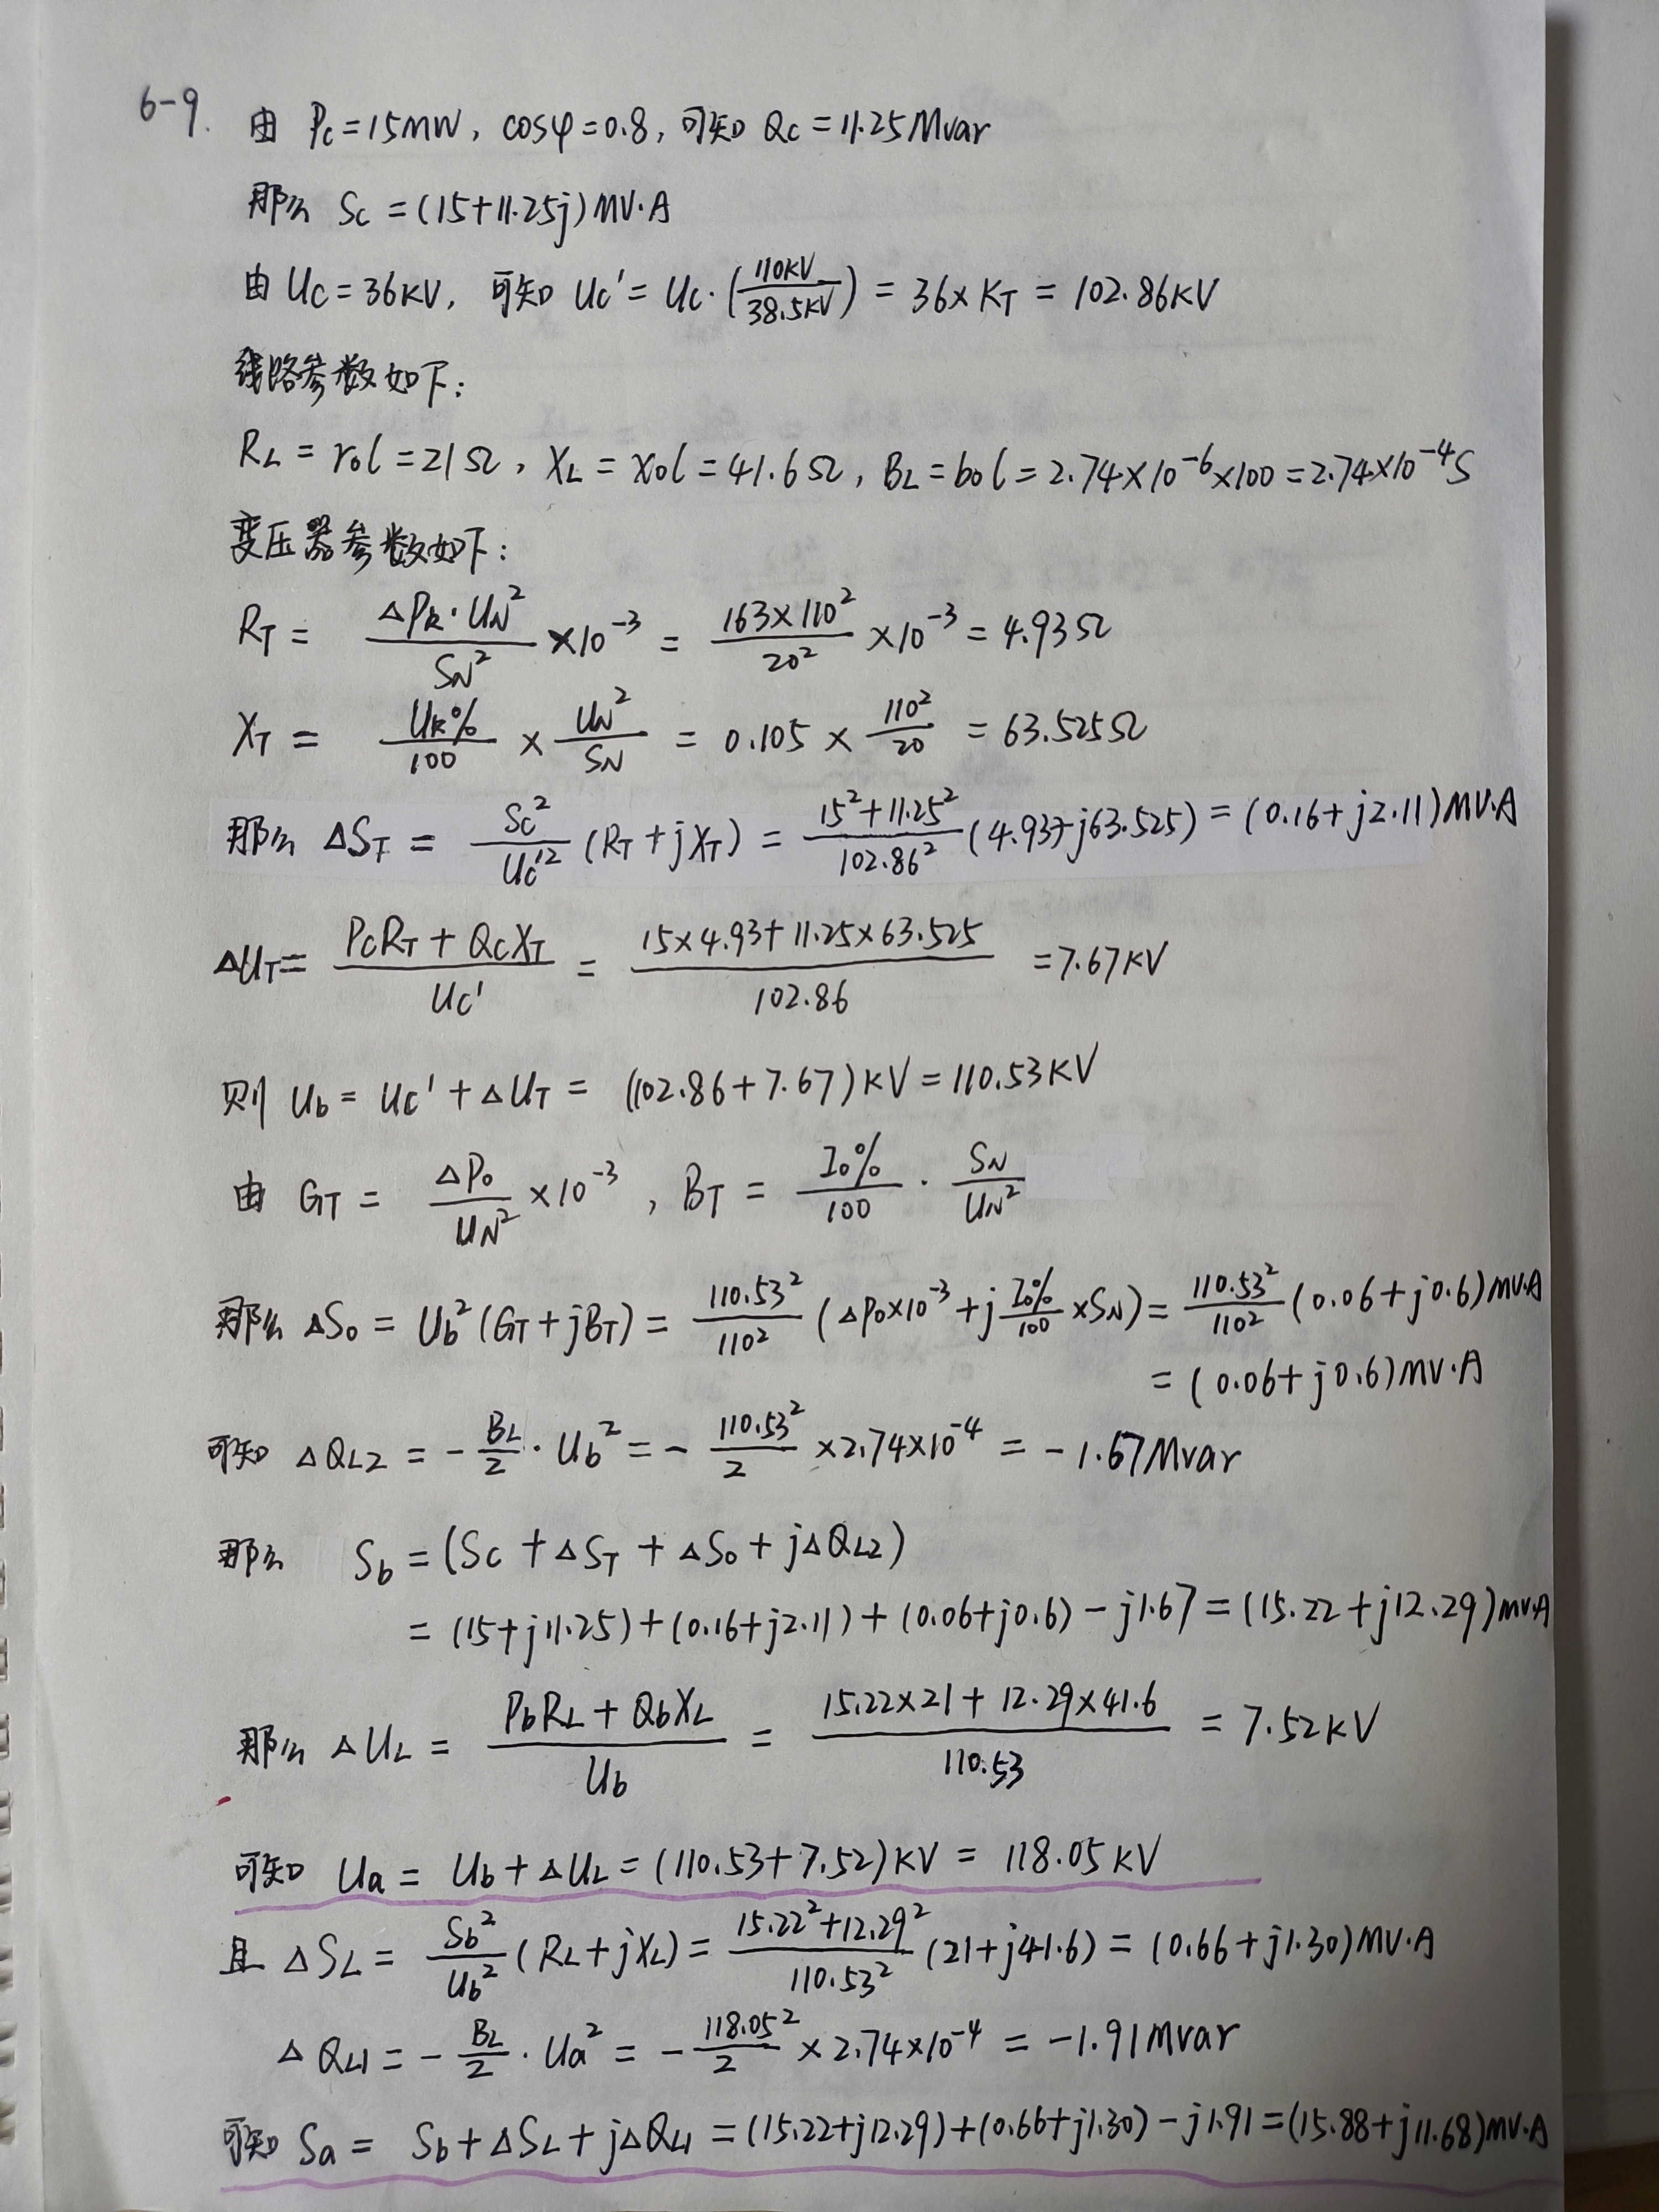 6-9. 由 Pc=15MW, cosφ=0.8, 可知 Qc=11.25Mvar
那么 Sc=(15+11.25j)MV·A
由 Uc=36KV, 可知 Uc'=Uc·(110KV/38.5KV)=36×KT=102.86KV
线路参数如下:
RL=r0l=21Ω, XL=x0l=41.6Ω, BL=b0l=2.74×10^-6×100=2.74×10^-4S
变压器参数如下:
RT=ΔPk·UN²/SN²×10^-3=163×110²/20²×10^-3=4.93Ω
XT=Uk%/100×UN²/SN=0.105×110²/20=63.525Ω
那么 ΔST=Sc²/Uc'²(RT+jXT)=15²+11.25²/102.86²(4.93+j63.525)=(0.16+j2.11)MV·A
ΔUT=PcRT+QcXT/Uc'=15×4.93+11.25×63.525/102.86=7.67KV
则 Ub=Uc'+ΔUT=(102.86+7.67)KV=110.53KV
由 GT=ΔP0/UN²×10^-3, BT=I0%/100·SN/UN²
那么 ΔS0=Ub²(GT+jBT)=110.53²/110²(ΔP0×10^-3+jI0%/100×SN)=110.53²/110²(0.06+j0.6)MV·A
=(0.06+j0.6)MV·A
可知 ΔQL2=-BL/2·Ub²=-110.53²/2×2.74×10^-4=-1.67Mvar
那么 Sb=(Sc+ΔST+ΔS0+jΔQL2)
=(15+j11.25)+(0.16+j2.11)+(0.06+j0.6)-j1.67=(15.22+j12.29)MV·A
那么 ΔUL=PbRL+QbXL/Ub=15.22×21+12.29×41.6/110.53=7.52KV
可知 Ua=Ub+ΔUL=(110.53+7.52)KV=118.05KV
且 ΔSL=Sb²/Ub²(RL+jXL)=15.22²+12.29²/110.53²(21+j41.6)=(0.66+j1.30)MV·A
ΔQL1=-BL/2·Ua²=-118.05²/2×2.74×10^-4=-1.91Mvar
可知 Sa=Sb+ΔSL+jΔQL1=(15.22+j12.29)+(0.66+j1.30)-j1.91=(15.88+j11.68)MV·A